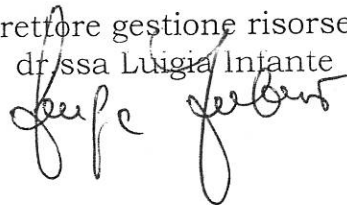 rettore gestione risorse
dr.ssa Luigia Infante